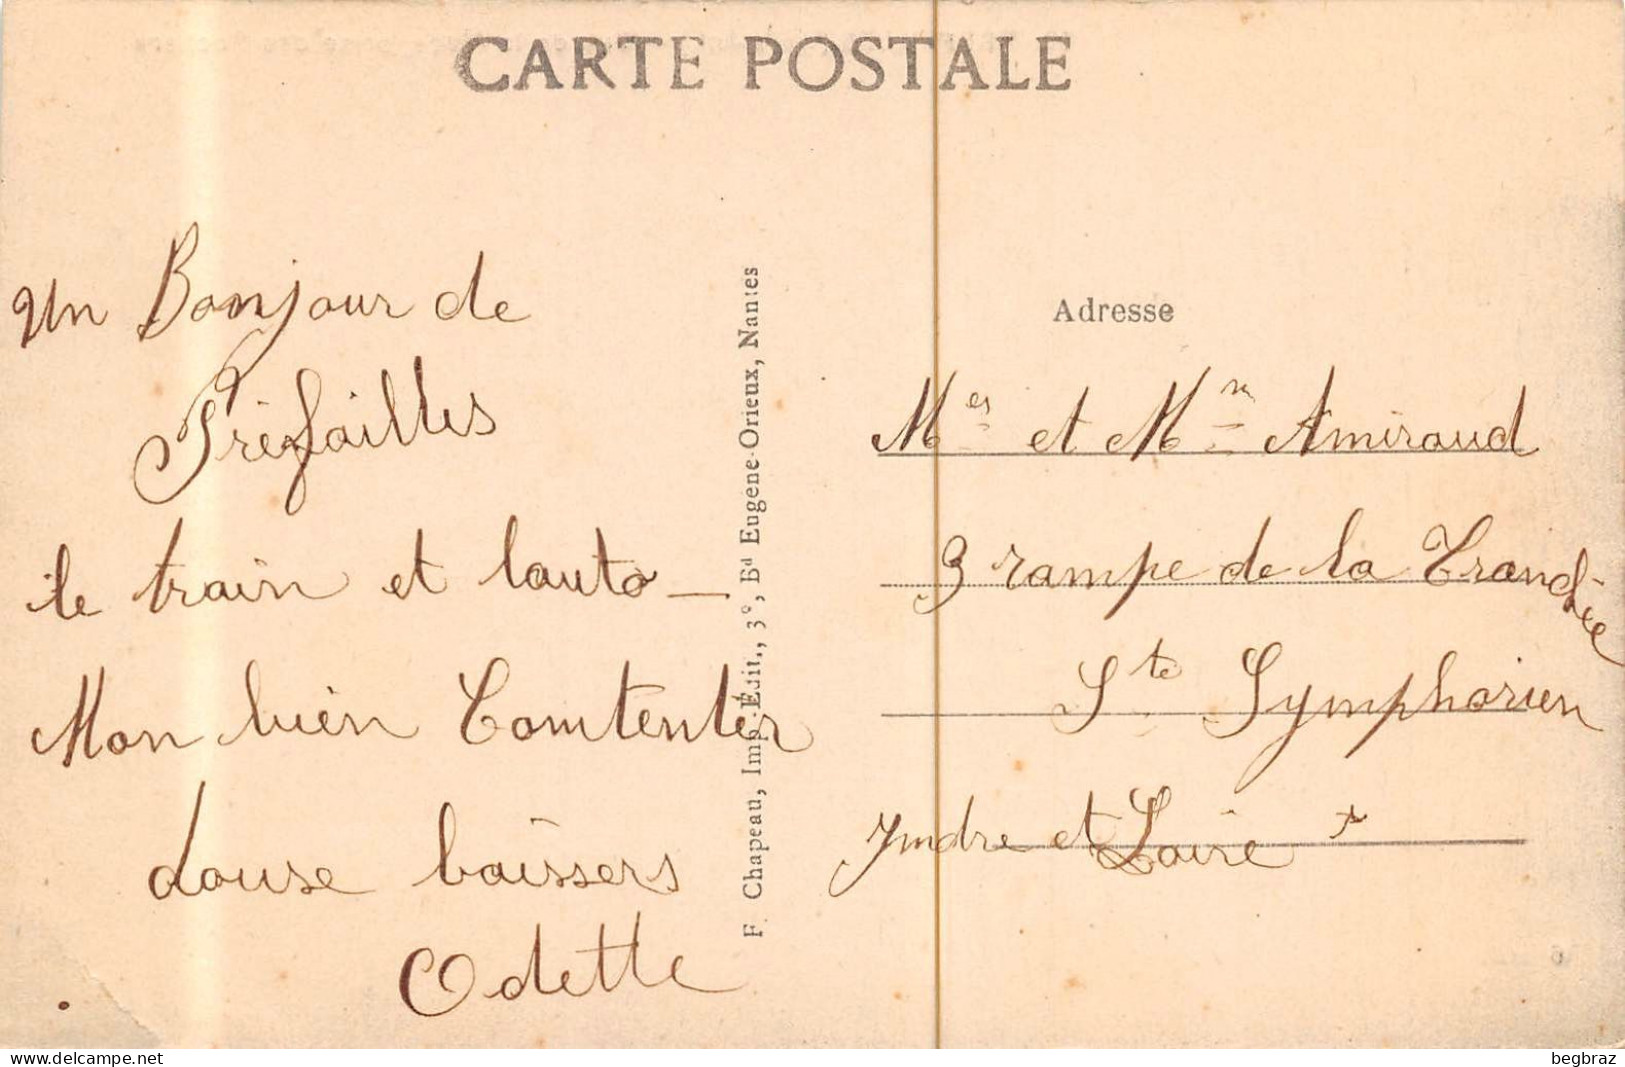 CARTE POSTALE
Un Bonjour de
Préfailles
le train et lauto —
Mon bien Comtenter
douse baissers
Odette
F. Chapeau, Imp.-Édit., 3°, Bd Eugène-Orieux, Nantes
Adresse
Mes et Mm Amiraud
9 rampe de la Tranchée
Ste Symphorien
Yndre et Loire
delcampe.net
begbraz